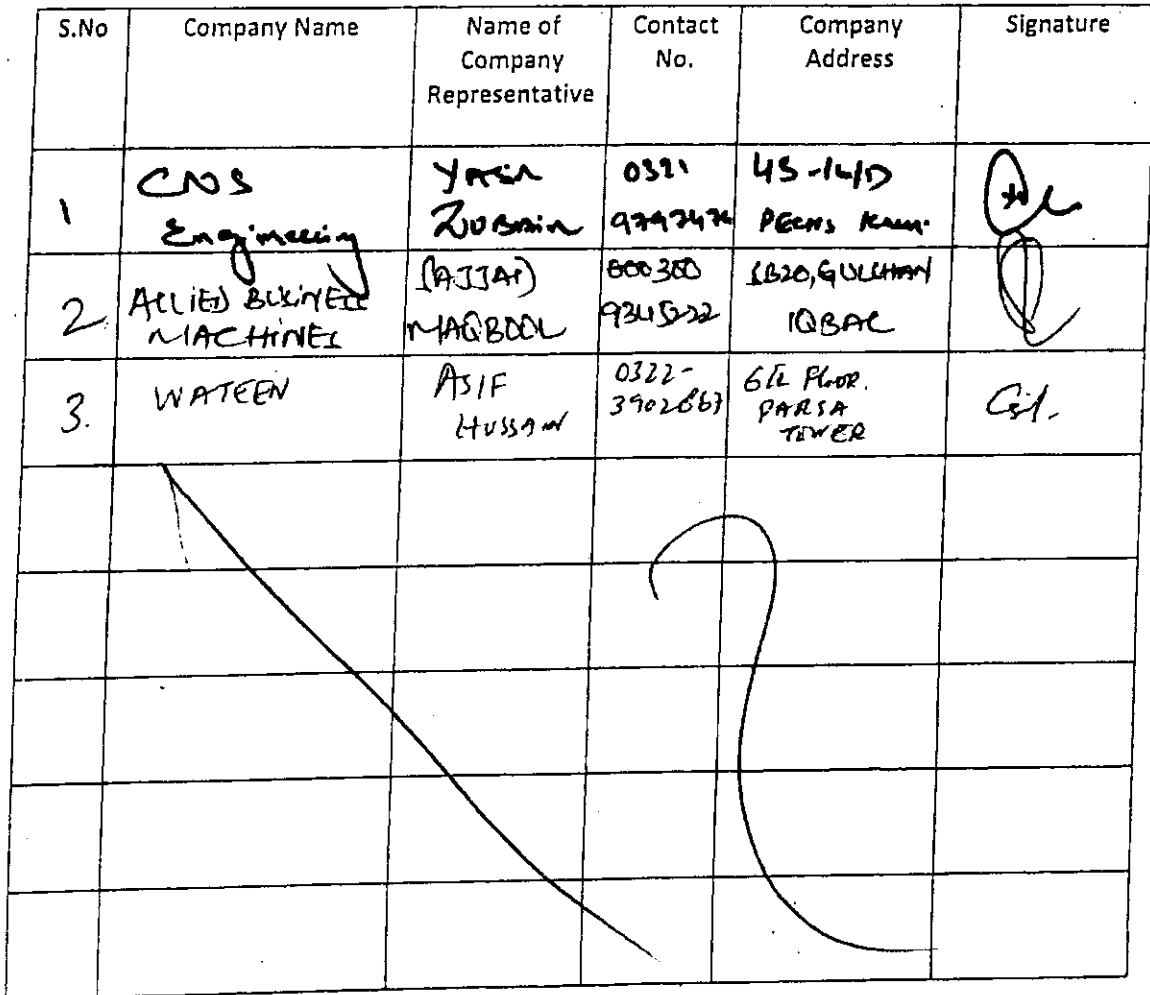 S.No Company Name Name of Company Representative Contact No. Company Address Signature
1 CNS Engineering Yasir Zubair 0321 PECHS
2 ALLIED BUSINESS MACHINES MAQBOOL GULSHAN IQBAL
3. WATEEN ASIF HUSSAIN 0322- 6th Floor. PARSA TOWER